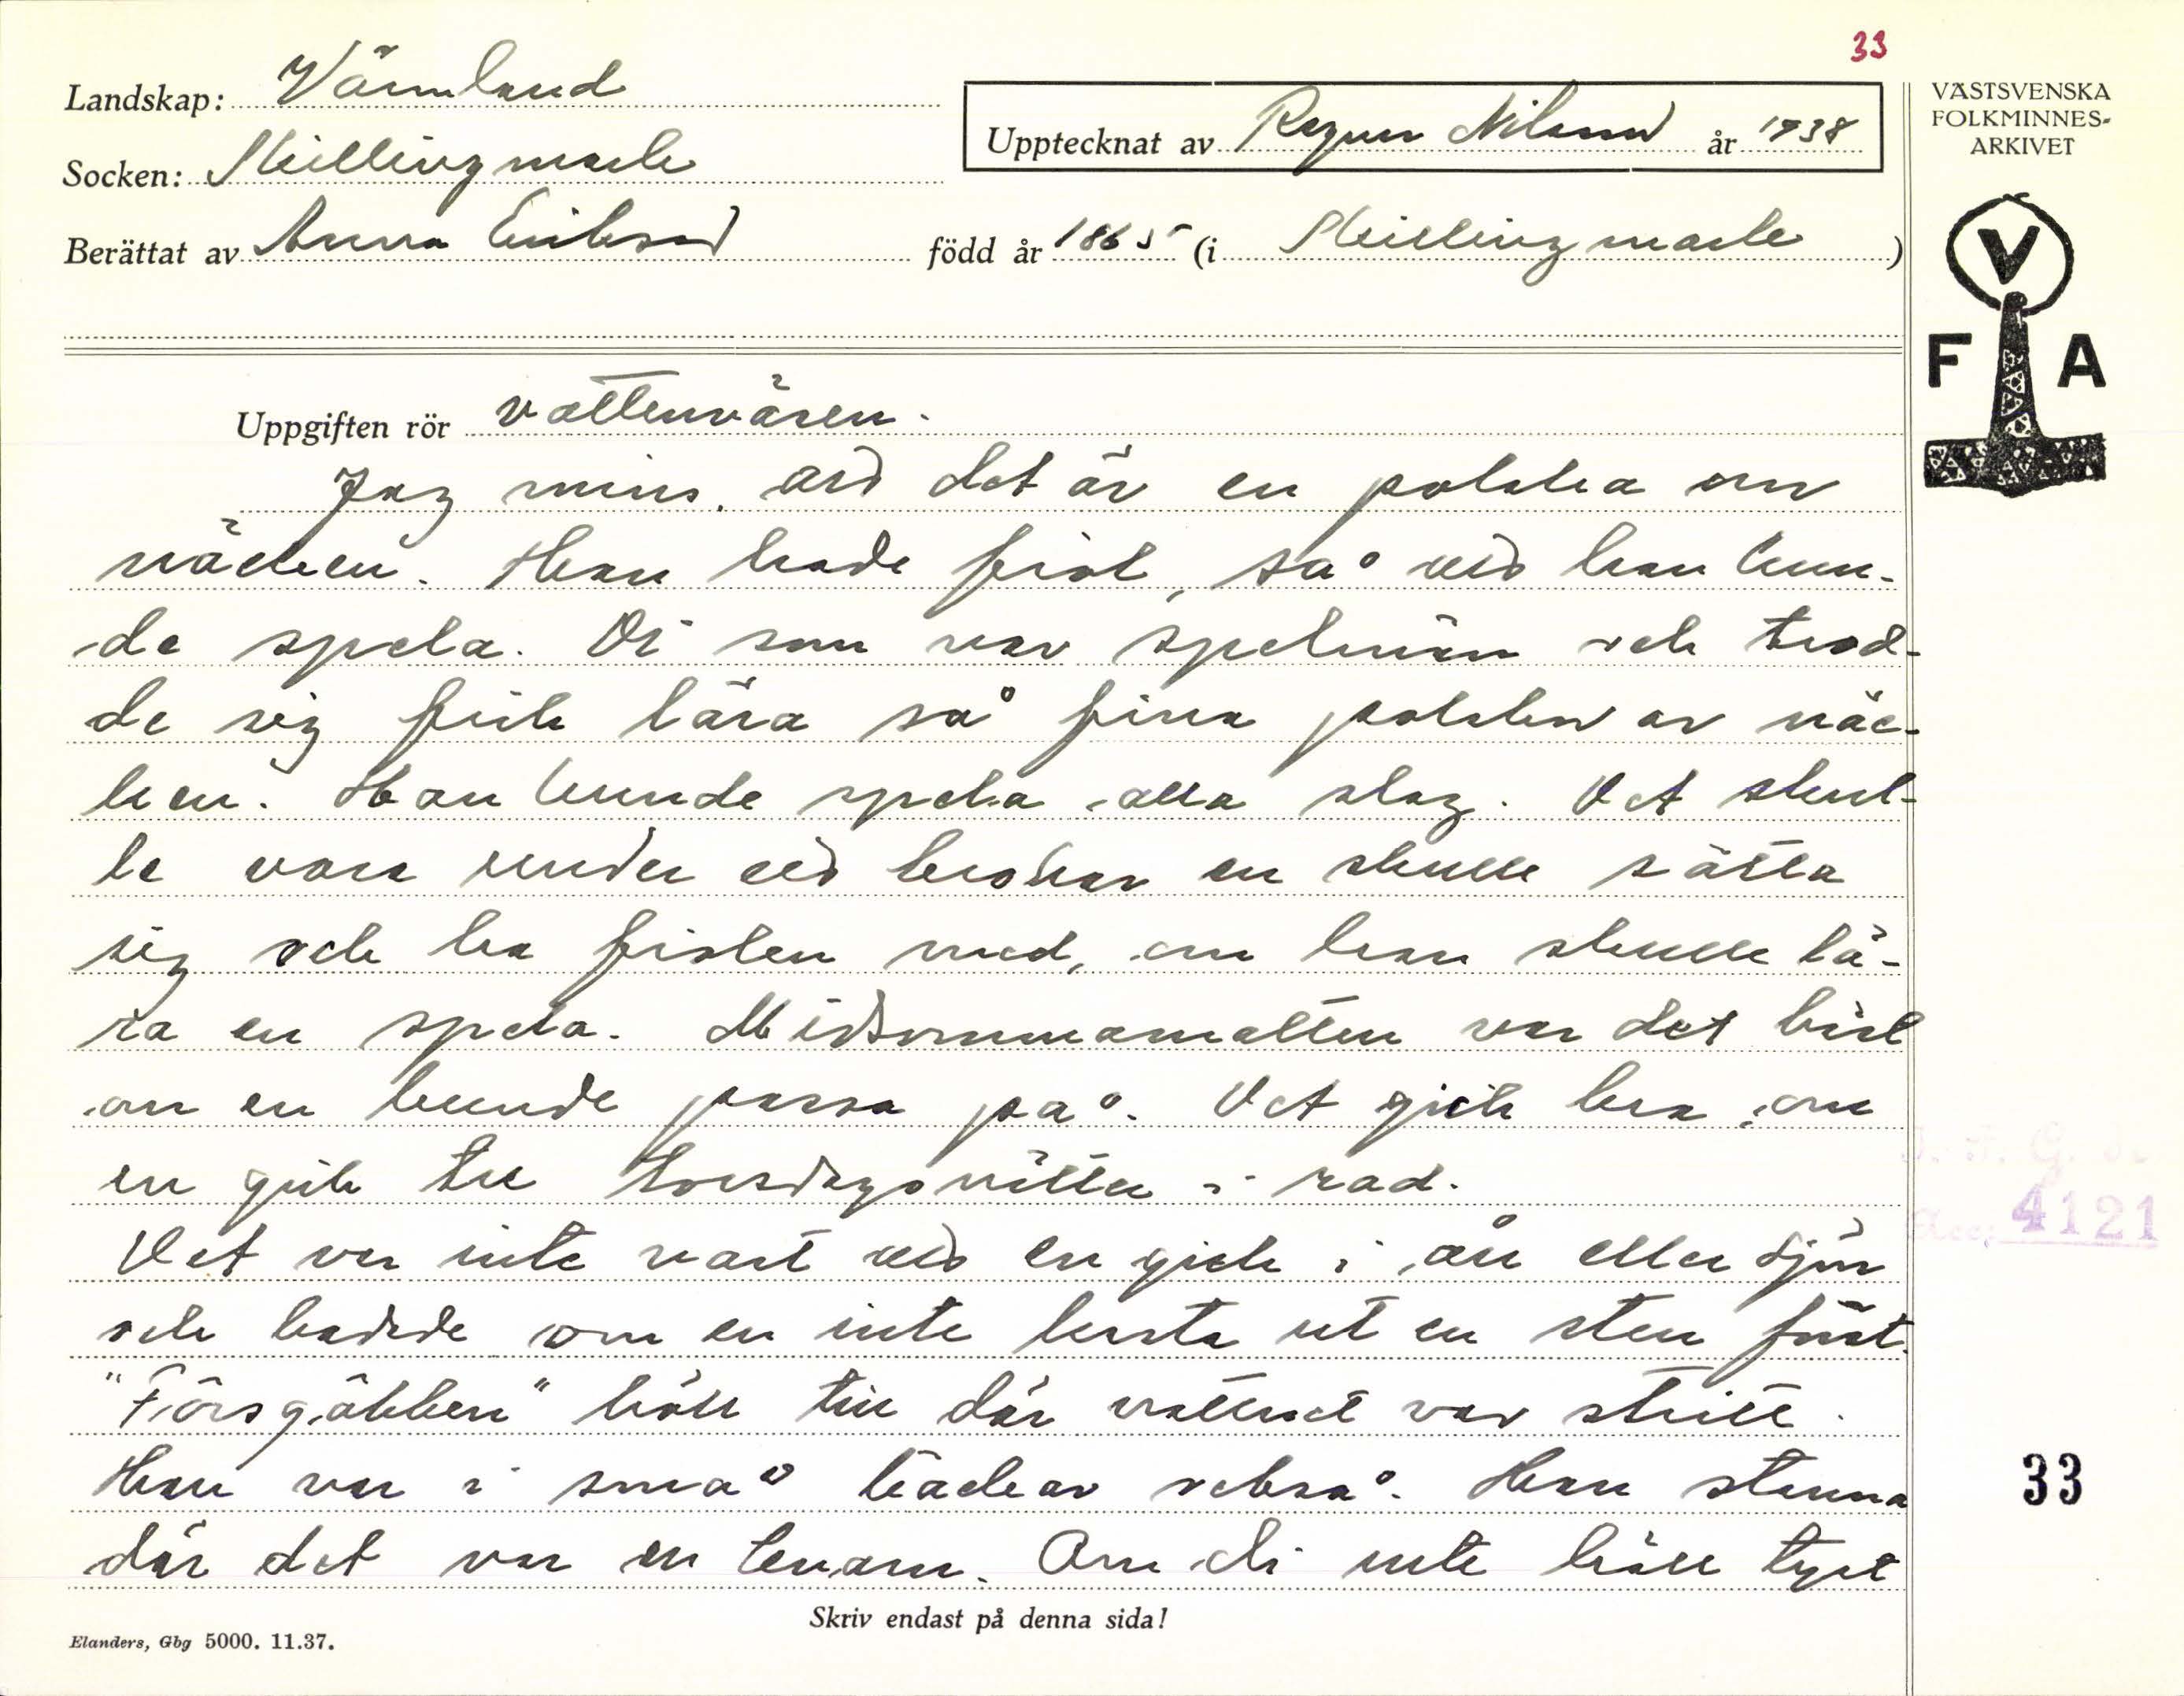 33
Landskap: Värmland
Upptecknat av Ragnar Nilsson år 1938
VÄSTSVENSKA
FOLKMINNES-
ARKIVET
Socken: Skillingmark
Berättat av Anna Eriksson född år 1865 (i Skillingmark)
V
F A
Uppgiften rör vattenväsen.
Jag mins, att det är en polska om
näcken. Han hade fiol, så att han kun-
de spela. Di som var spelmän och trod-
de sig fick lära så fina polskor av näc-
ken. Han kunde spela alla slag. Det skul-
le vara under ett brokar en skulle sätta
sig och ha fiolen med, om han skulle lä-
ra en spela. Midsommarnatten var det bäst
om en kunde passa på. Det gick bra, om
en gick tre torsdagsnätter i rad.
Det var inte värt att en gick i ån eller sjön
och badade om en inte kasta ut en sten först.
"Forsgubben" höll till där vattnet var stritt.
Han var i små bäckar också. Han stanna
där det var en kvarn. Om di inte höll tyst
J. F. G. s.
Acc. 4121
33
Skriv endast på denna sida!
Elanders, Gbg 5000. 11.37.